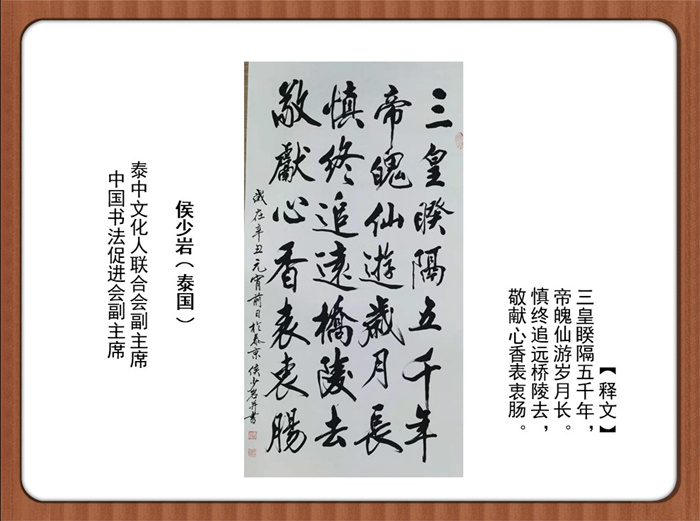 【释文】
三皇睽隔五千年，
帝魄仙游岁月长。
慎终追远桥陵去，
敬献心香表衷肠。
三皇睽隔五千年
帝魄仙遊歲月長
慎終追遠橋陵去
敬獻心香表衷腸
歲在辛丑元宵前日於泰京侯少岩并書
侯少岩（泰国）
泰中文化人联合会副主席
中国书法促进会副主席